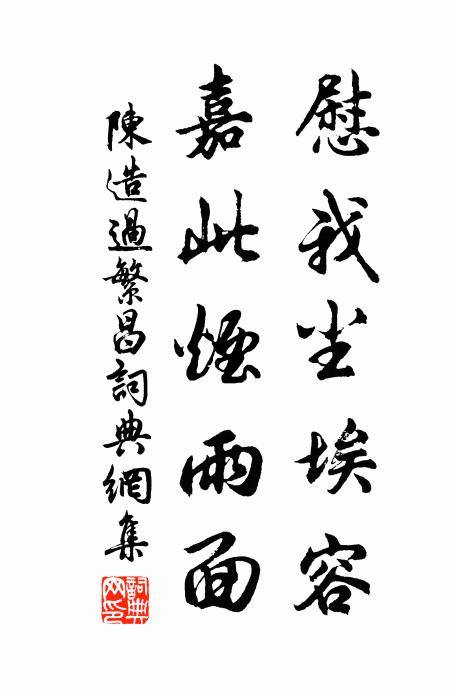 慰我尘埃容
嘉此煙雨面
陳造過繁昌詞典網集
詞典